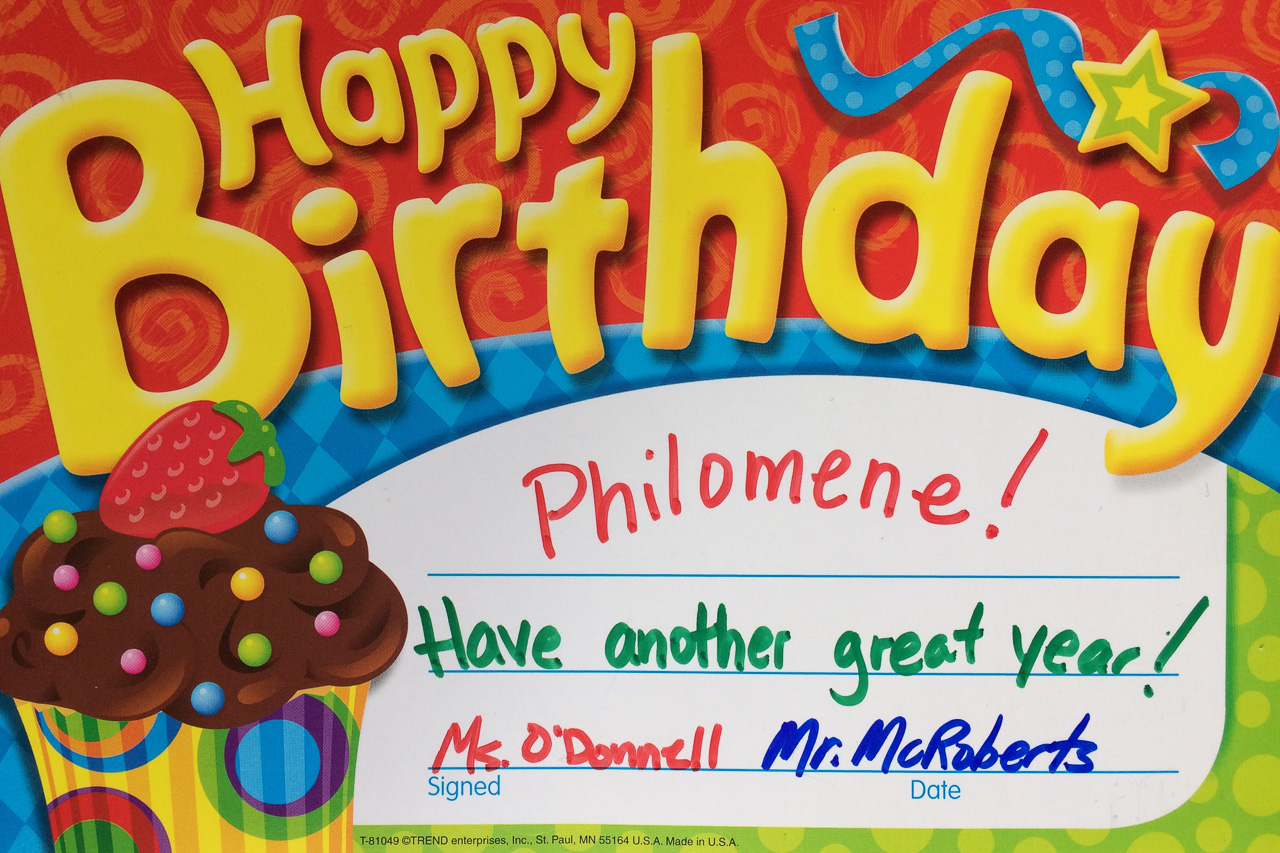 Happy
Birthday
Philomene!
Have another great year!
Ms. O'Donnell Mr. McRoberts
Signed Date
T-81049 ©TREND enterprises, Inc., St. Paul, MN 55164 U.S.A. Made in U.S.A.